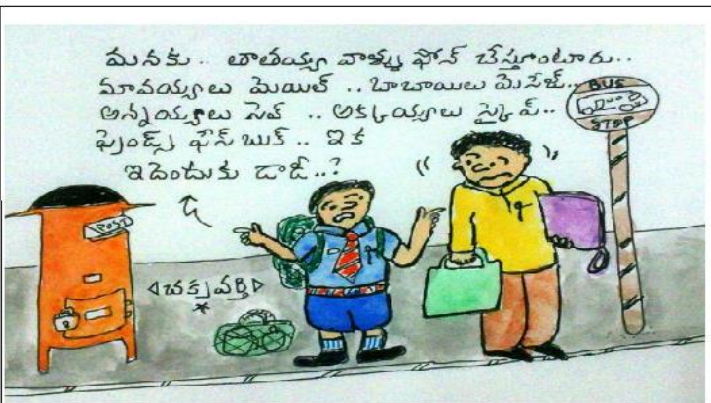 మనకు.. తాతయ్యా వాళ్ళు ఫోన్ చేస్తూంటారు..
మావయ్యలు మెయిల్ .. బాబాయిలు మెసేజ్..
అన్నయ్యలు సెల్ .. అక్కయ్యలు స్కైప్..
ఫ్రెండ్స్ ఫేస్ బుక్.. ఇక
ఇదెందుకు డాడీ..?
BUS
STOP
POST
చక్రవర్తి